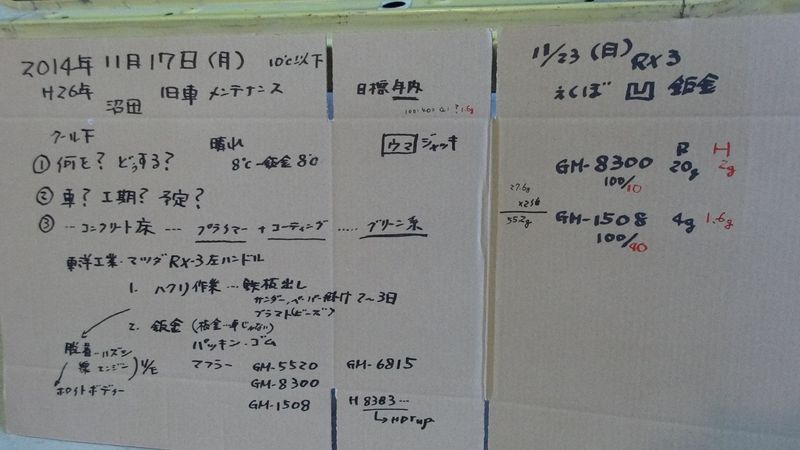 2014年 11月17日(月) 10℃以下
H26年 旧車 メンテナンス
沼田
晴れ
① 何を? どうする? 8℃ 鈑金 8℃
② 車? 工期? 予定?
③ …コンクリート床 … プライマー + コーティング ….. グリーン系
東洋工業・マツダ RX-3 左ハンドル
1. ハクリ作業 … 鉄板出し
サンダー、ペーパー掛け 2〜3日
ブラスト(ビーズ)
2. 鈑金
パッキン・ゴム
脱着
エンジン
ホワイトボディー
マフラー GM-5520 GM-6815
GM-8300
GM-1508 H 8383…
HDT up
目標 年内
ウマ ジャッキ
11/23 (日) RX3
えくぼ 凹 鈑金
R H
GM-8300 20g 2g
100/10
27.6g
×2倍
55.2g
GM-1508 4g 1.6g
100/40